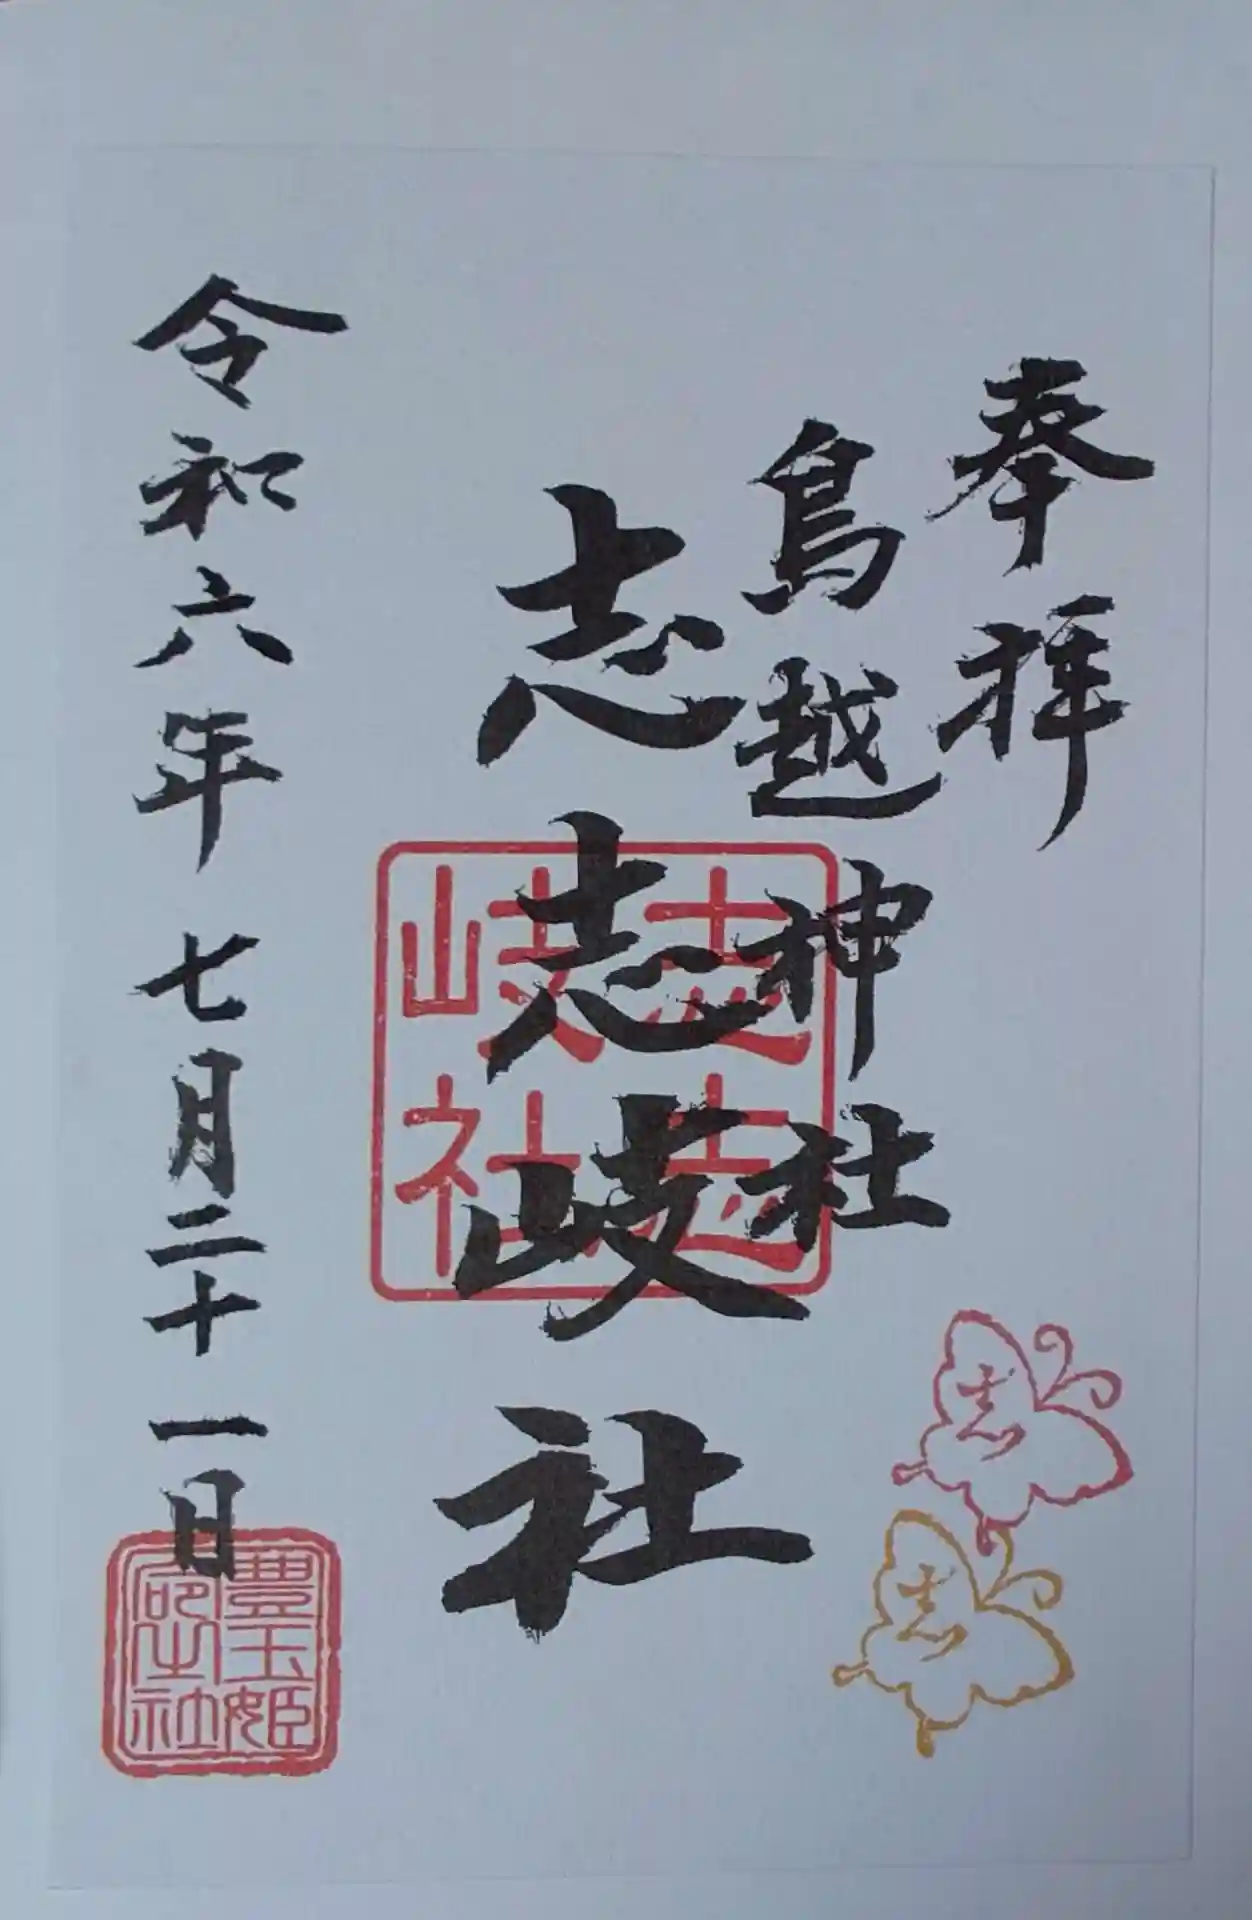 奉拝
鳥越神社
志志岐社
志志岐社
令和六年七月二十一日
豊玉姫
社
志
志